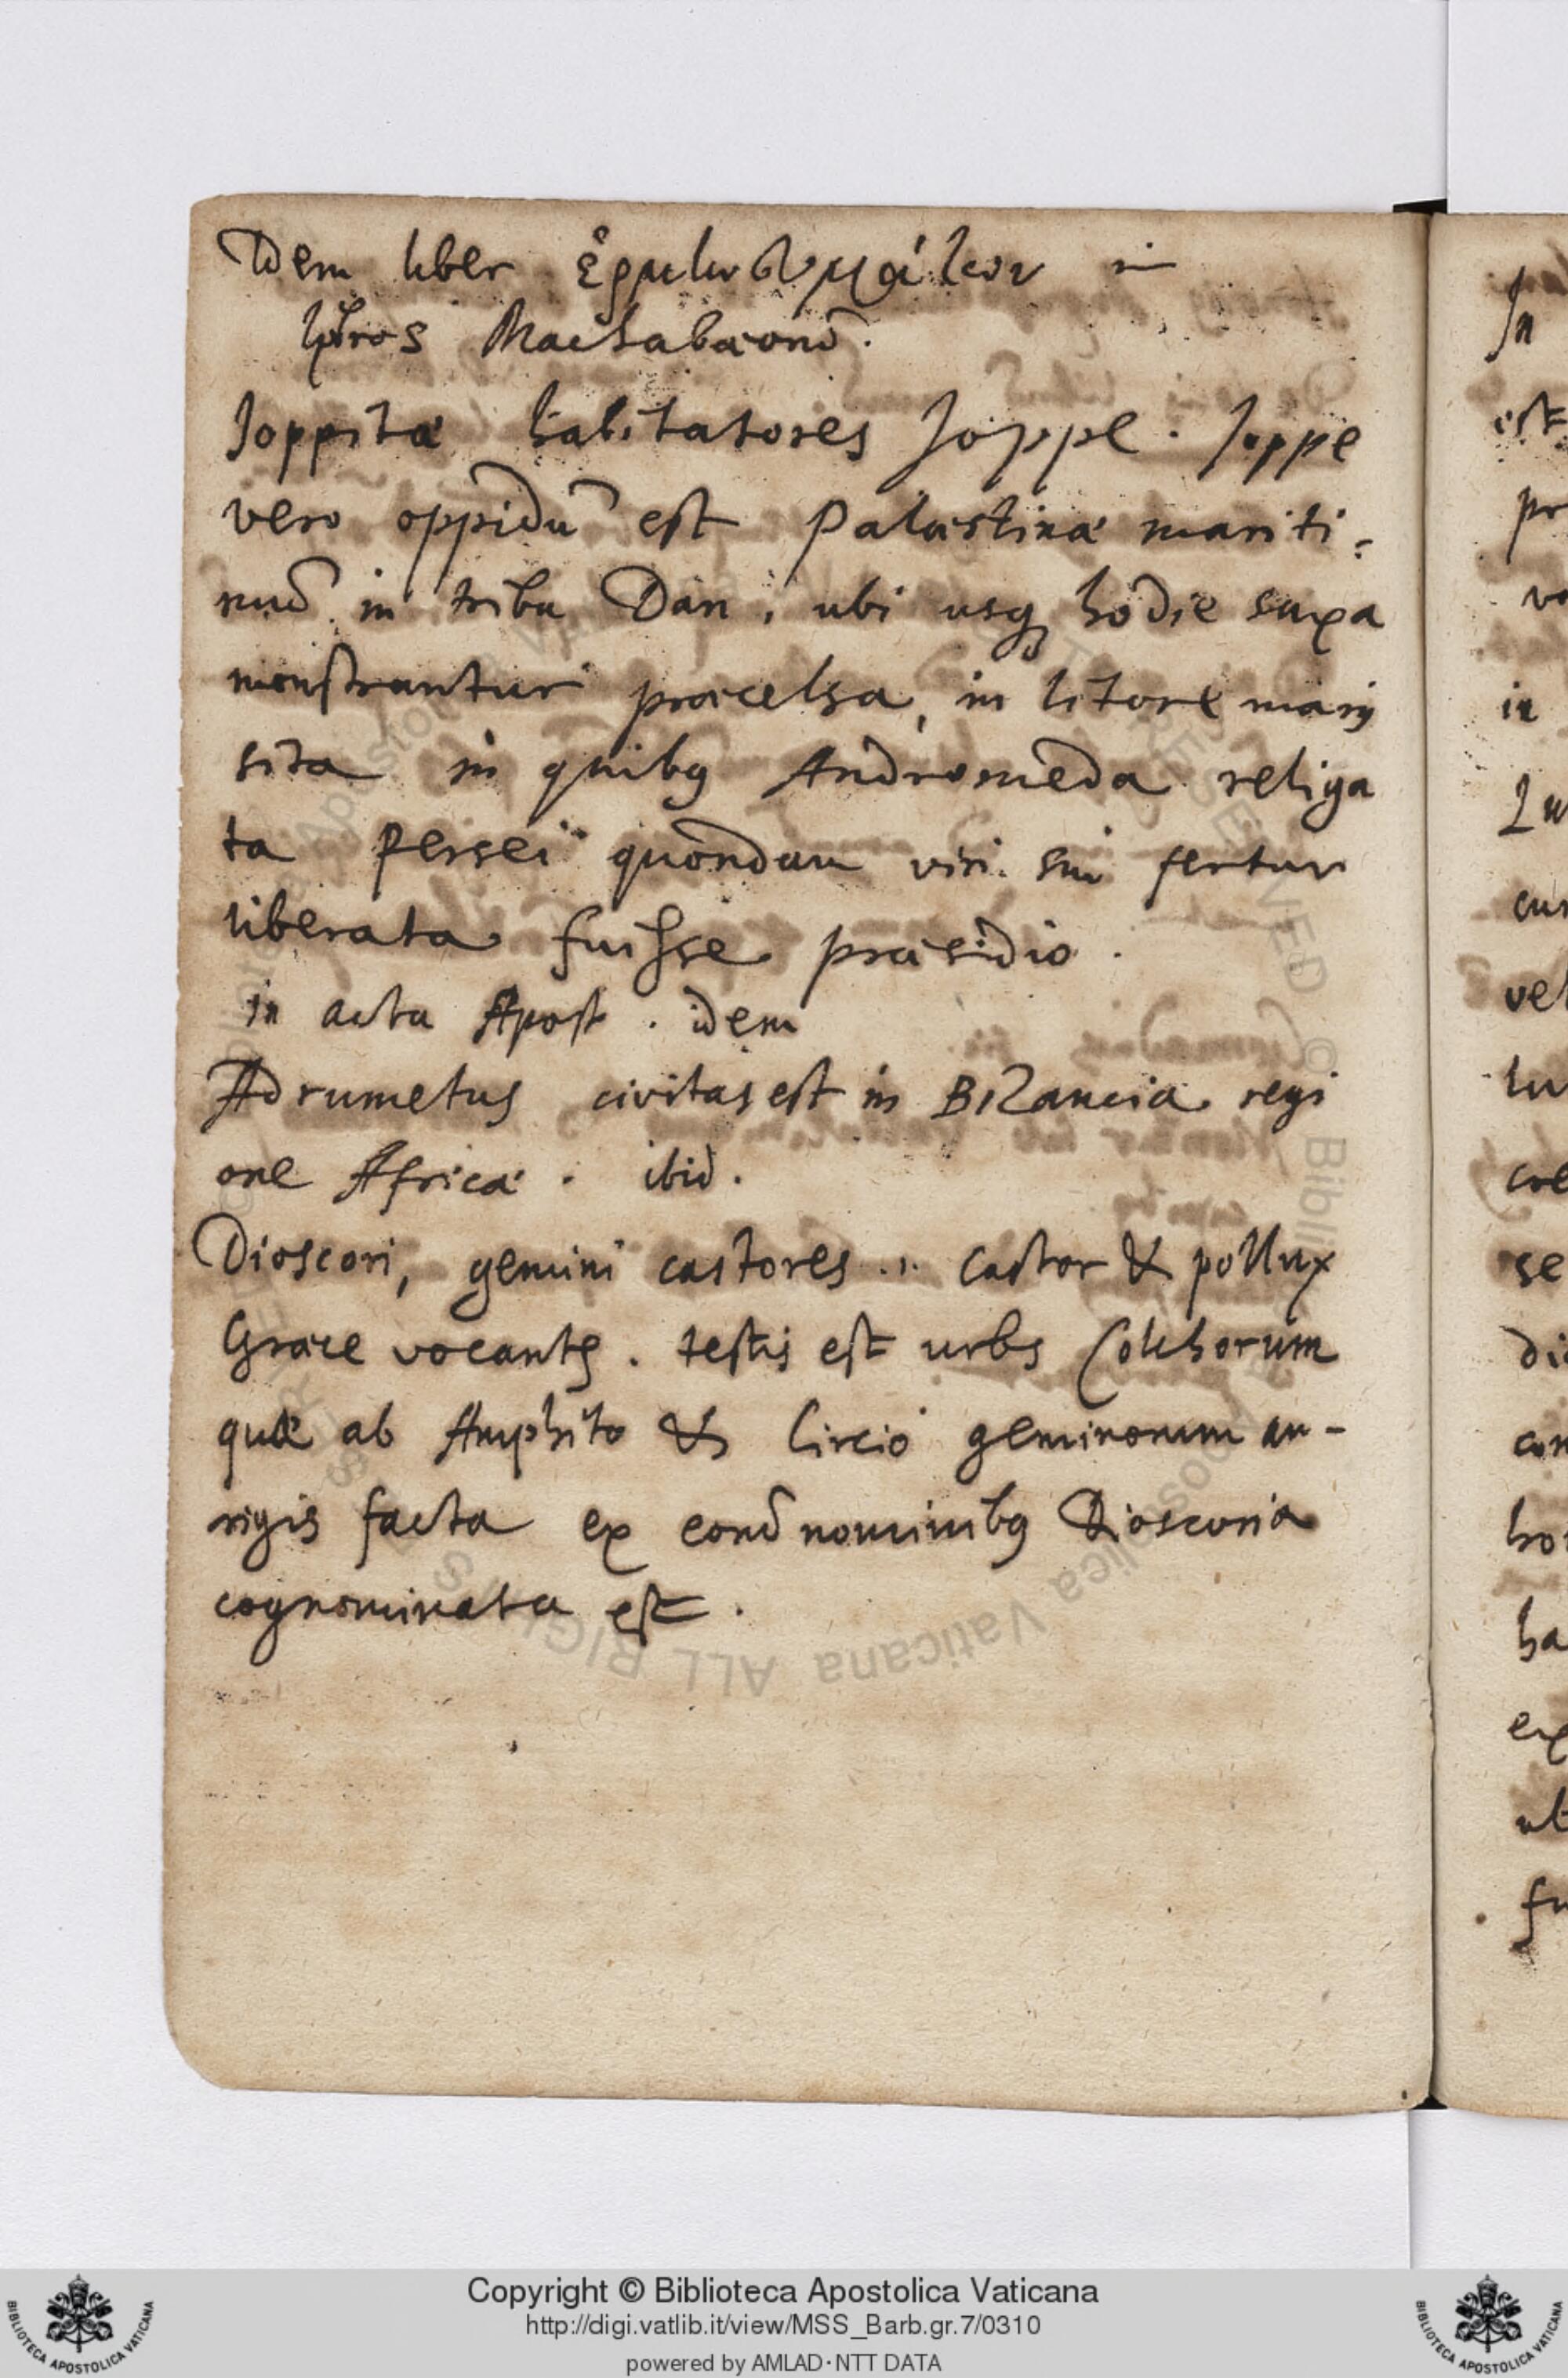 Idem liber ἑρμηνευμάτων in
libros Machabæorũ.
Joppitæ habitatores Joppe. Joppe
vero oppidũ est Palæstinæ mariti:
mũ in tribu Dan, ubi usq hodie saxa
monstrantur præcelsa, in litore maris
sita in quibꝯ Andromeda religa
ta Persei quondam viri sui fertur
liberata fuisse præsidio.
in acta Apost. idem
Adrumetus civitas est in BiZancia regi
one Africæ. ibid.
Dioscori, gemini castores .i. castor & pollux
Græce vocantꝭ. testis est urbs Colchorum
quæ ab Amphito & Circio geminorum au-
rigis facta ex eorũ nominibꝯ Dioscoria
cognominata est.
In
est
pr
vo
in
cu
vel
lu
cre
se
di
con
ho
ha
ex
ut
fu
Copyright © Biblioteca Apostolica Vaticana
http://digi.vatlib.it/view/MSS_Barb.gr.7/0310
powered by AMLAD·NTT DATA
BIBLIOTECA APOSTOLICA VATICANA
BIBLIOTECA APOSTOLICA VATICANA